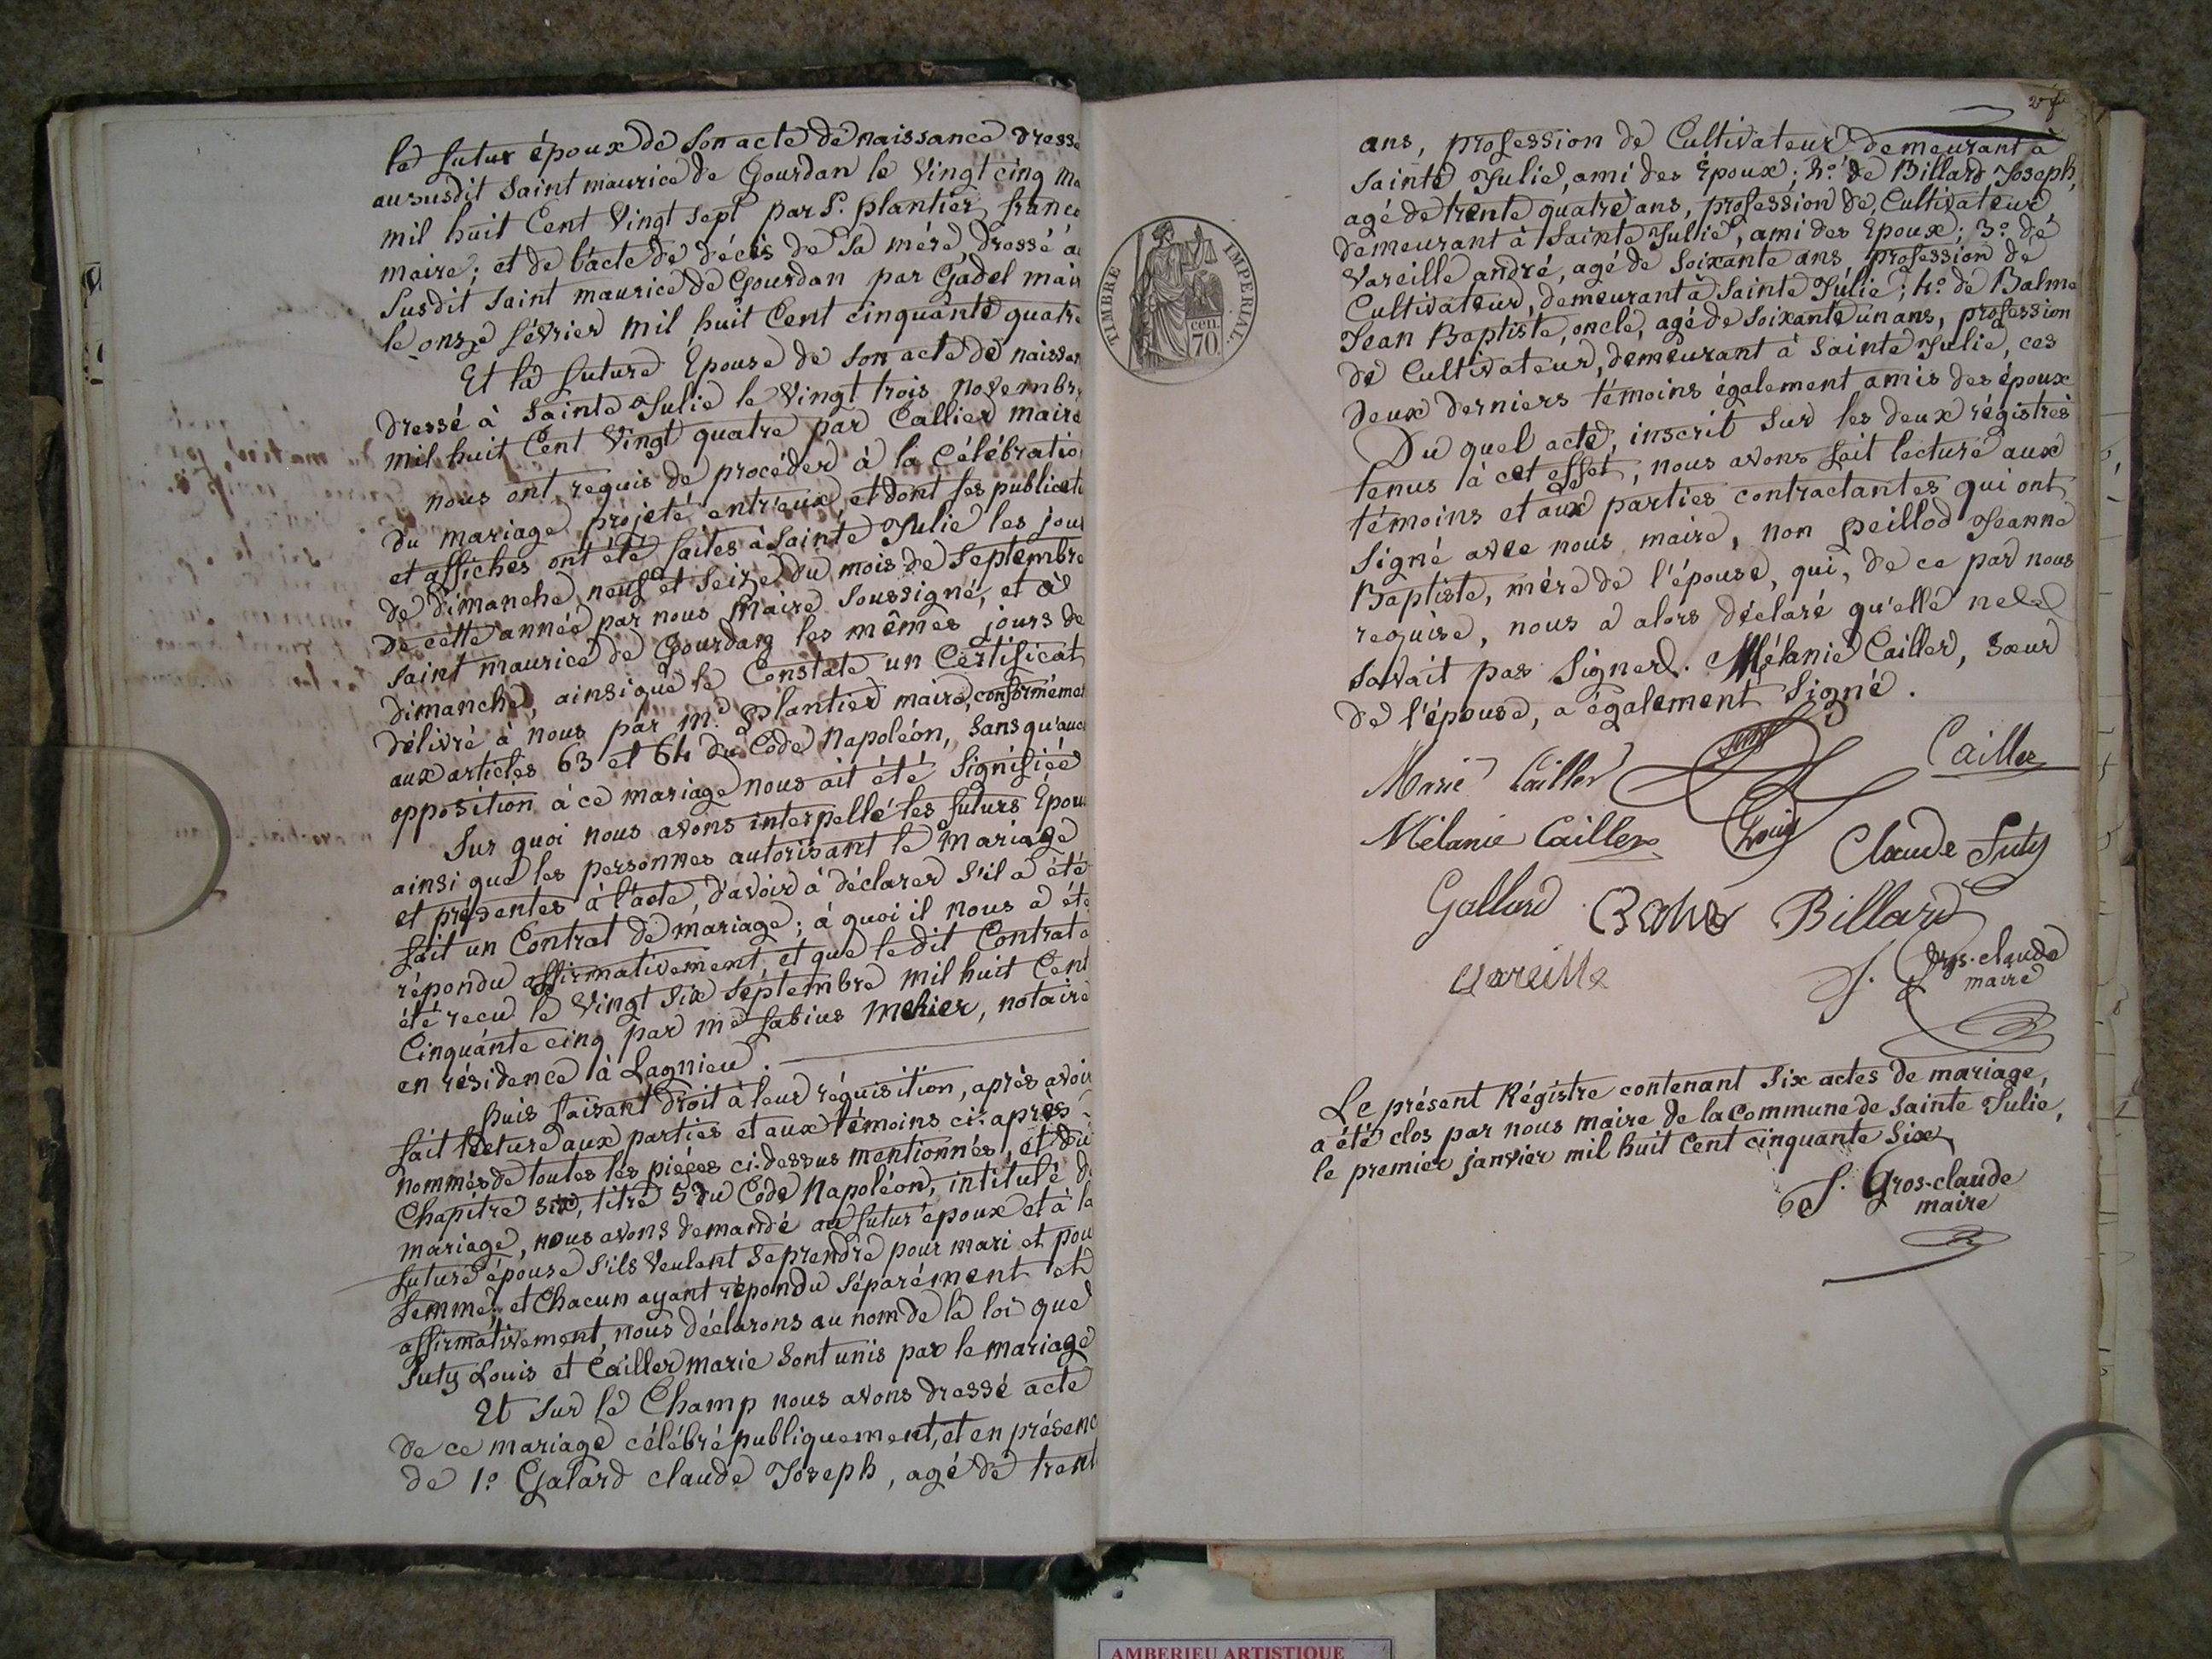 le futur époux de son acte de naissance dressé
au susdit Saint maurice de Gourdan le Vingt cinq ma
mil huit Cent Vingt sept par S. plantier franco
maire; et de l'acte de décès de sa mère, dressé a
susdit Saint maurice de Gourdan par Gadel mair
le onze février mil huit Cent cinquante quatre
Et la future Epouse de son acte de naissan
dressé à Sainte Julie le Vingt trois novembre
mil huit Cent Vingt quatre par Callier maire
nous ont requis de procéder à la Célébratio
du mariage projeté entr'eux, et dont les publicati
et affiches ont été faites à Sainte Julie les jour
de dimanche, neuf et seize du mois de Septembre
de cette année par nous Maire soussigné, et à
saint maurice de Gourdan les mêmes jours de
dimanche, ainsi que le Constate un Certificat
délivré à nous par mr. Plantier maire, conformémen
aux articles 63 et 64 du Code Napoléon, sans qu'auc
opposition à ce mariage nous ait été signifiée
Sur quoi nous avons interpellé les futurs Epou
ainsi que les personnes autorisant le mariage
et présentes à l'acte, d'avoir à déclarer s'il a été
fait un Contrat de mariage; à quoi il nous a été
répondu affirmativement, et que le dit Contrat a
été recu le Vingt Six Septembre mil huit Cent
Cinquante cinq par me fabius Mehier, notaire
en résidence à Lagnieu.
puis faisant droit à leur réquisition, après avoir
fait lecture aux parties et aux témoins ci-après
nommés de toutes les pièces ci-dessus mentionnés, et du
Chapitre six, titre 5 du Code Napoléon, intitulé d
mariage, nous avons demandé au futur époux et à la
future épouse s'ils veulent se prendre pour mari et pou
femme; et Chacun ayant répondu séparément et
affirmativement, nous déclarons au nom de la loi que
Juty Louis et Cailler marie sont unis par le mariage
Et sur le Champ nous avons dressé acte
de ce mariage célébré publiquement, et en présenc
de 1.º Galard claude Joseph, agé de trent
ans, profession de Cultivateur demeurant à
Sainte Julie, ami des Epoux; 2.º de Billard Joseph,
agé de trente quatre ans, profession de Cultivateur
demeurant à Sainte Julie, ami des Epoux; 3.º de
Vareille andré, agé de soixante ans, profession de
Cultivateur, demeurant à Sainte Julie; 4.º de Balme
Jean Baptiste, oncle, agé de soixante un ans, profession
de Cultivateur, demeurant à Sainte Julie, ces
deux derniers témoins également amis des époux
Du quel acte, inscrit sur les deux régistres
tenus à cet effet, nous avons fait lecture aux
témoins et aux parties contractantes qui ont
signé avec nous maire, non Peillod Jeanne
Baptiste, mère de l'épouse, qui, de ce par nous
requise, nous a alors déclaré qu'elle ne le
savait pas signer. Mélanie Cailler, sœur
de l'épouse, a également signé.
Marie Cailler Juty Cailler
Mélanie Cailler Louis Claude Juty
Gallard Billard
Vareille J. Gros-claude
maire
Le présent Régistre contenant Six actes de mariage,
a été clos par nous maire de la Commune de Sainte Julie,
le premier janvier mil huit Cent cinquante Six
J. Gros-claude
maire
TIMBRE IMPERIAL
cen.
70
AMBERIEU ARTISTIQUE